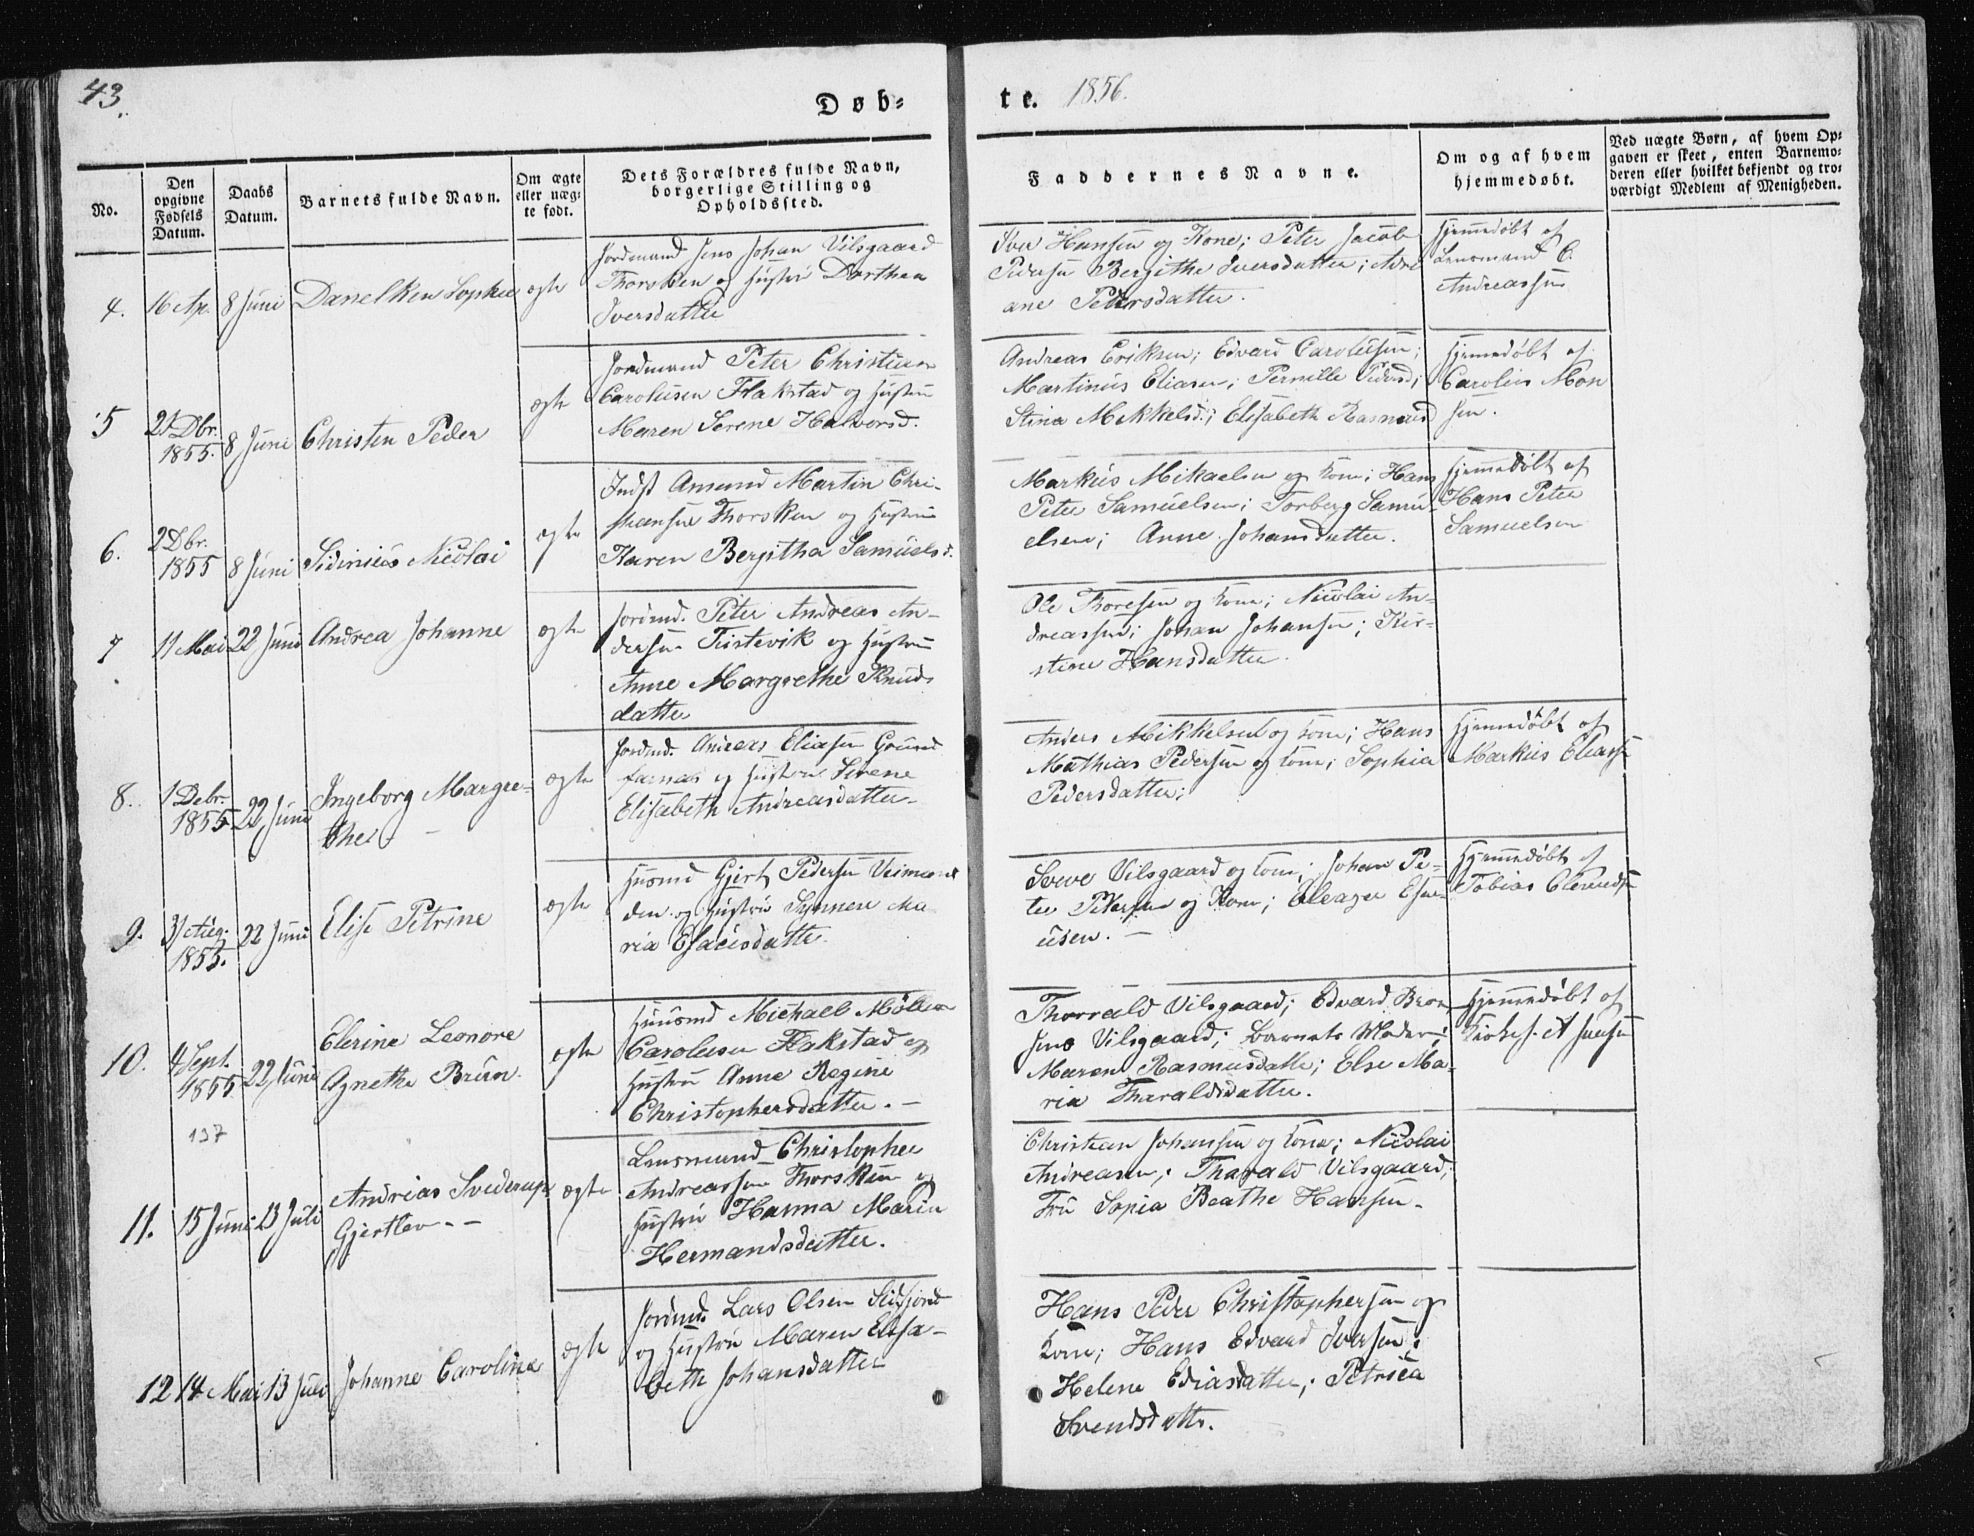 43.
Døb=
te. 1856.
No.
Den opgivne Fødsels Datum.
Daabs Datum.
Barnets fulde Navn.
Om ægte eller uægte født.
Dets Forældres fulde Navn, borgerlige Stilling og Opholdssted.
Faddernes Navne.
Om og af hvem hjemmedøbt.
Ved uægte Børn, af hvem Op=
gaven er skeet, enten Barnemo=
deren eller hvilket bekjendt og tro=
værdigt Medlem af Menigheden.
4. 16 Ap. 8 Juni Danelken Sophie ægte
Jordmand Jens Johan Vilsgaard
Thorsken og Hustru Dorthea
Iversdatter
Iver Hansen og Kone; Peter Jacob
Pedersen Bergithe Iversdatter; Adri
ane Petersdatter.
Hjemmedøbt af
Lensmand C.
Andreassen
5 21 Dbr. 1855. 8 Juni Christen Peder ægte
Jordmand Peter Christian
Carolusen Flakstad og Hustru
Maren Serene Halvorsd.
Andreas Eriksen; Edvard Carolusen;
Martinus Eliasen; Pernille Pedersd;
Stina Mikkelsd.; Elisabeth Rasmusd
Hjemmedøbt af
Carolus Mon
sen.
6. 2 Dbr. 1855 8 Juni Sidinius Nicolai ægte
Indst Amund Martin Chri-
stiansen Thorsken og Hustru
Karen Bergitha Samuelsd.
Markus Mikaelsen og Kone; Hans
Peter Samuelsen; Torberg Samu-
elsen; Anne Johansdatter.
Hjemmedøbt af
Hans Peter
Samuelsen
7 11 Mai 22 Juni Andrea Johanne ægte
Jordmd. Peter Andreas An-
dersen Tistevik og Hustru
Anne Margrethe Knuds
datter
Ole Thoresen og Kone; Nicolai An-
dreassen; Johan Johansen; Kir-
stine Hansdatter.
8. 1 Debr. 1855 22 Juni Ingeborg Margre-
the - ægte
Jordmd. Anders Eliasen Grund
farnas og Hustru Serene
Elisabeth Andreasdatter-
Anders Mikkelsen og Kone; Hans
Mathias Pedersen og Kone; Sophia
Pedersdatter;
Hjemmedøbt af
Markus Eliassn
9. 31 Aug. 1855. 22 Juni Elise Petrine ægte
Husmd Gjert Pedersen
den og Hustru Synnen Ma
ria Esaiasdatter
Vilsgaard og Kone; Johan Pe-
ter Pedersen og Kone; Eleazer Esai-
asen. -
Hjemmedøbt af
Tobias
10. 4 Sept. 1855 22 Juni Elerine Leonore
Agnethe Bruun. ægte
Husmd Michael Møller
Carolusen Flakstad og
Hustru Anne Regine
Christophersdatter. -
Thorvald Vilsgaard; Edvard Bron
Jens Vilsgaard; Barnets Moder;
Maren Rasmusdatte; Else Ma-
ria Tharaldsdatter.
Hjemmedøbt af
Kirkes. A Jensen
137
11. 15 Juni 13 Juli Andrias Sverderup
Gjertlov. - ægte
Lensmand Christopher
Andreassen Thorsken og
Hustru Hanna Marie
Hermandsdatter.
Christian Johansen og Kone; Nicolai
Andreasen; Tharald Vilsgaard;
Fru Sopia Beathe Hansen.
12 14 Mai 13 Juli Johanne Caroline ægte
Jordmd. Lars Olsen Sifjord
og Hustru Maren Elisa-
beth Johansdatter
Hans Peder Christophersen og
Kone; Hans Edvard Iversen;
Helene Ediasdatter; Petrica
Svendsdattr.